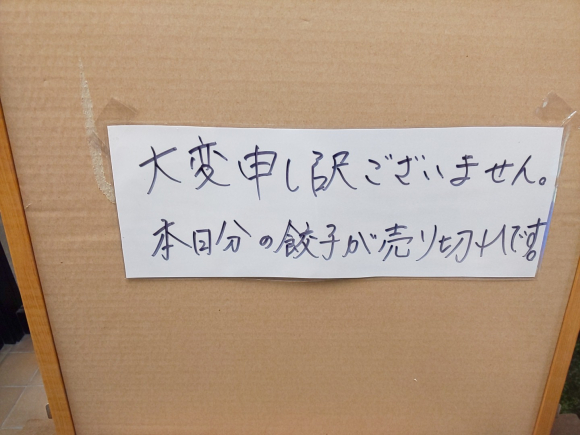 大変申し訳ございません。
本日分の餃子が売り切れです。